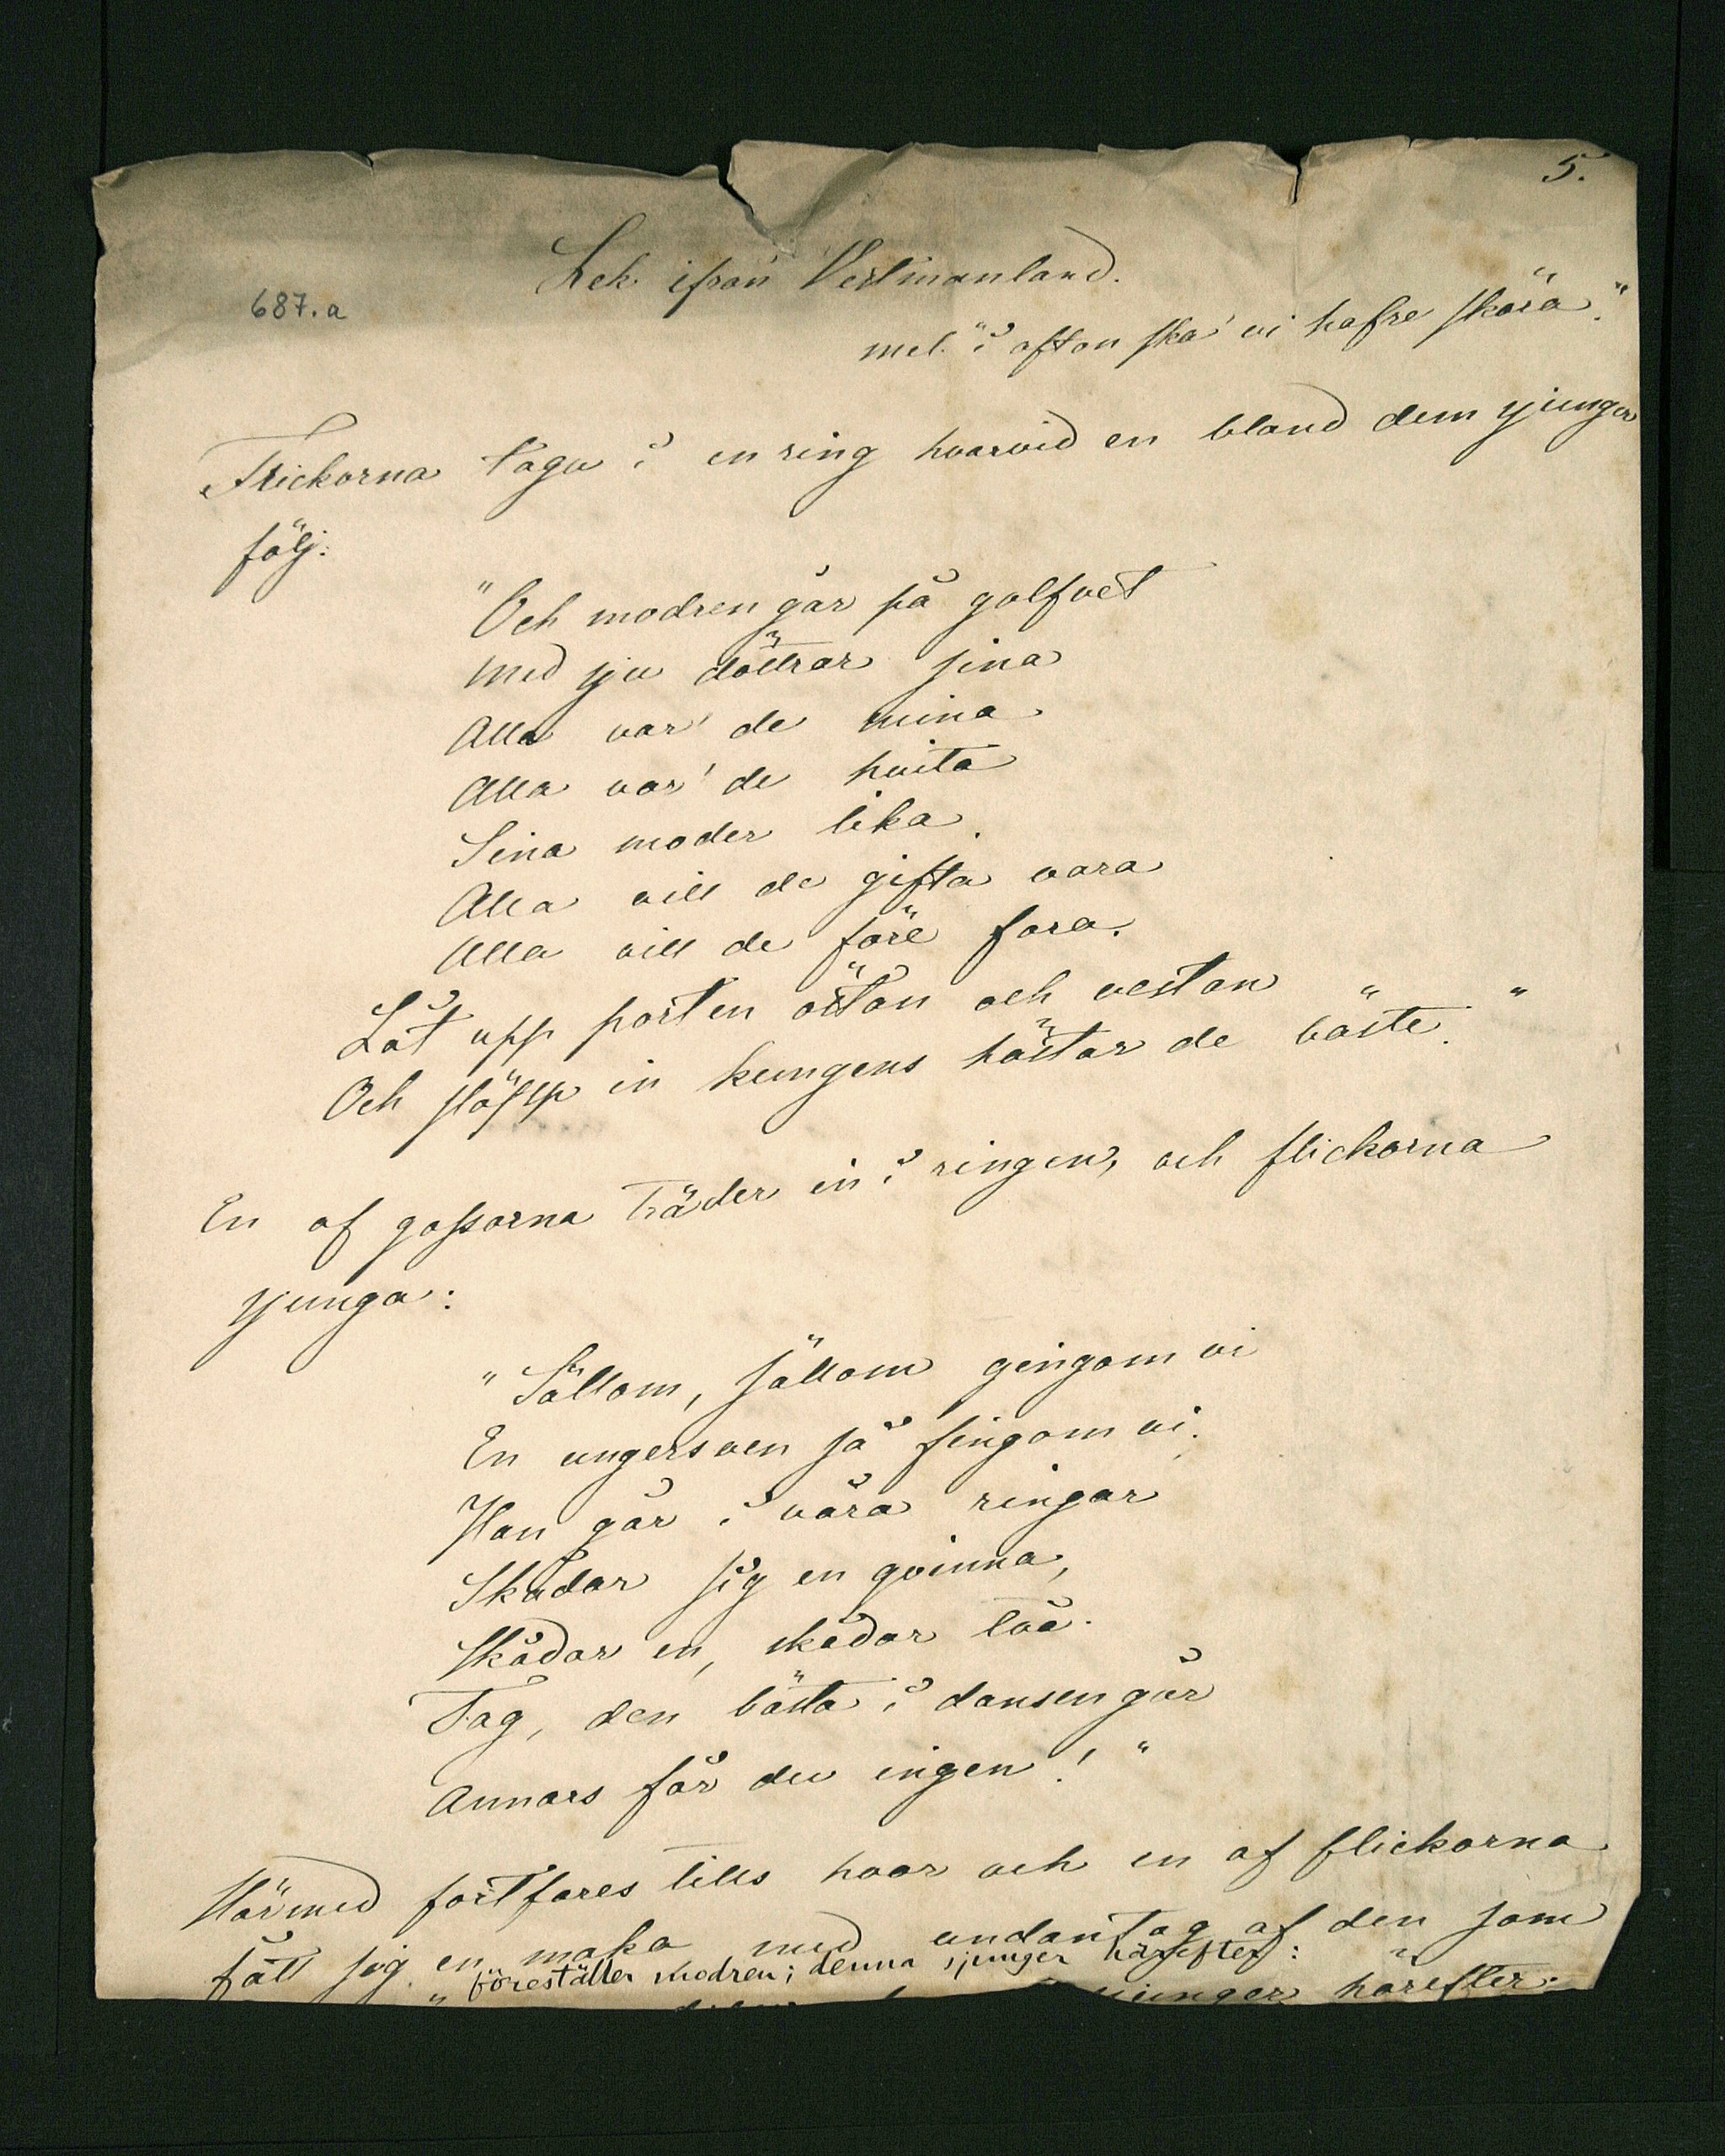 5.
Lek ifrån Vestmanland.
687.a
mel. "i afton ska' vi hafre skära."
Flickorna taga i en ring hvarvid en bland dem sjunger
följ:
"Och modren går på golfvet
Med sju döttrar sina
Alla var' de mina
Alla var' de hvita
Sina moder lika.
Alla vill de gifta vara
Alla vill de före fara.
Låt upp porten östan och vestan
Och släpp in kungens hästar de bäste."
En af gossarna träder in i ringen, och flickorna
sjunga:
"Sällom, sällom gingom vi
En ungersven så fingom vi.
Han går i våra ringar
Skådar sig en qvinna,
Skådar en, skådar två.
Tag, den bästa i dansen går
Annars får du ingen!"
Härmed fortfares tills hvar och en af flickorna
fått sig en maka med undantag af den som
föreställer modren; denna sjunger härefter:
sjunger härefter: